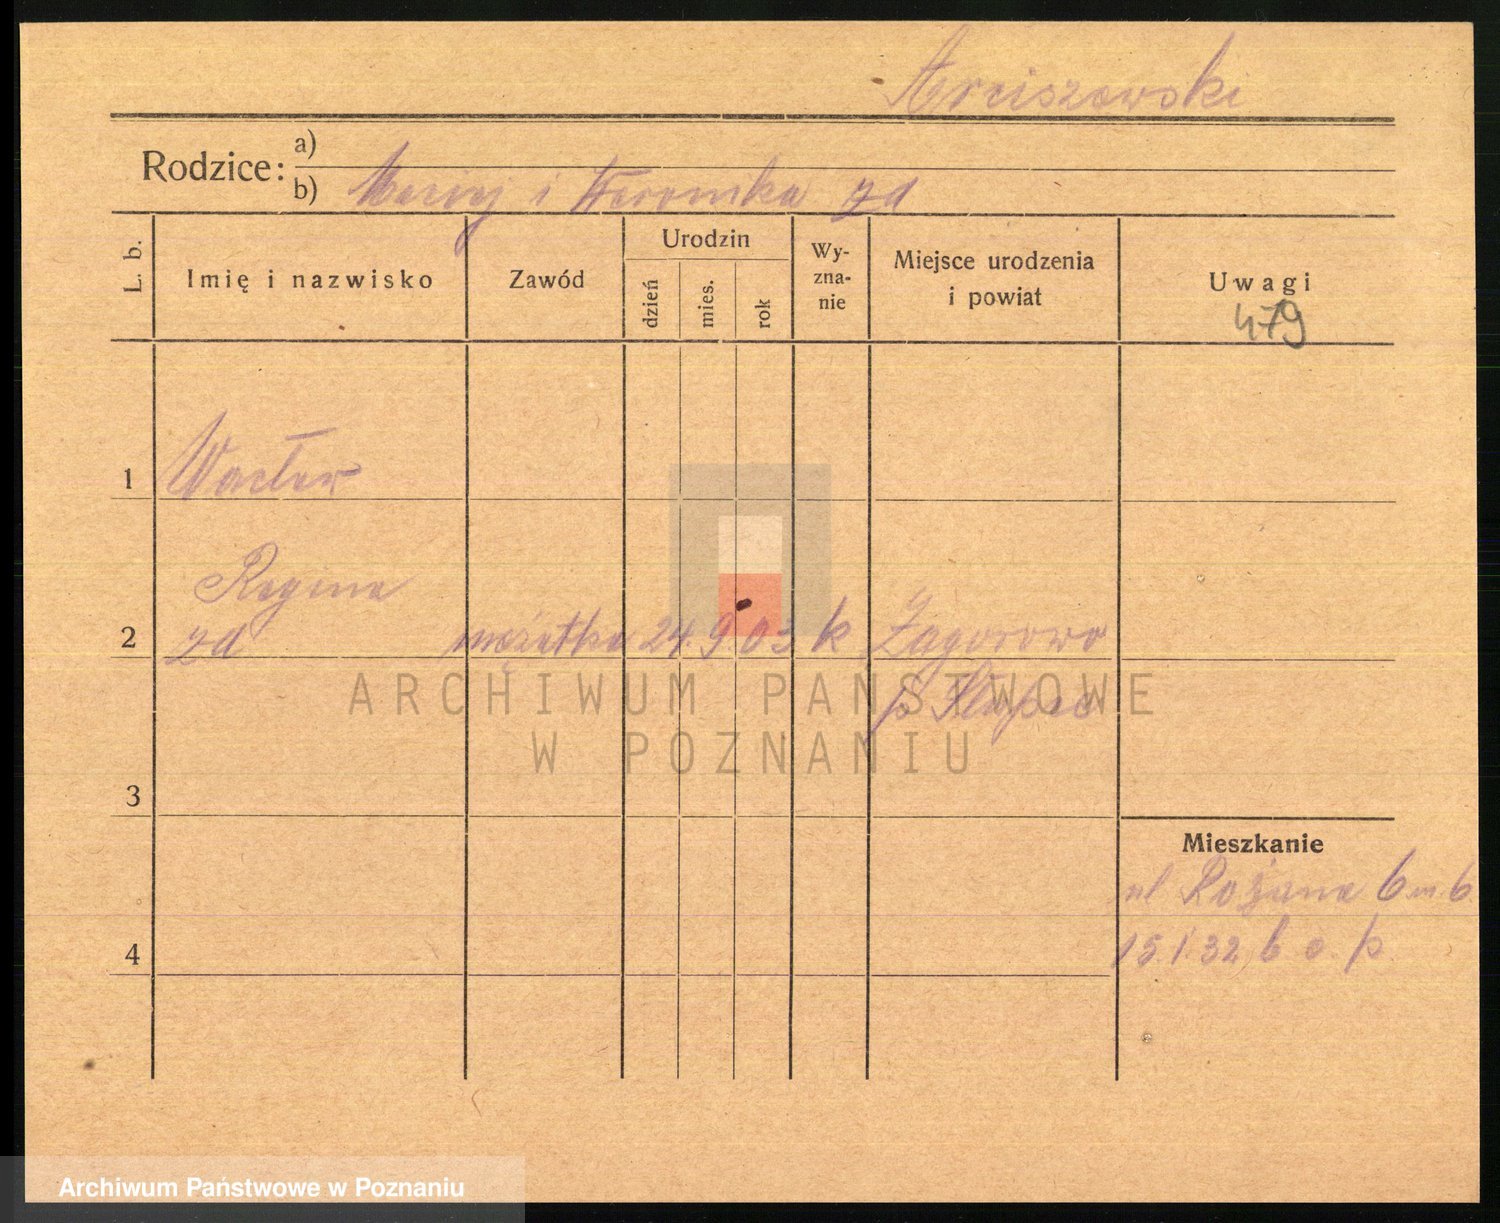 Arciszewski
Rodzice: a)
b) Maciej i Weronika zd
L. b.
Imię i nazwisko
Zawód
Urodzin
dzień
mies.
rok
Wy-
zna-
nie
Miejsce urodzenia
i powiat
Uwagi
479
1 Wacław
Regina
2 zd mężatka 24. 9. 03 k Zagorowo
p Słupca
3
4
Mieszkanie
ul Różana 6 m. 6
15.1.32, b o. p.
ARCHIWUM PAŃSTWOWE
W POZNANIU
Archiwum Państwowe w Poznaniu